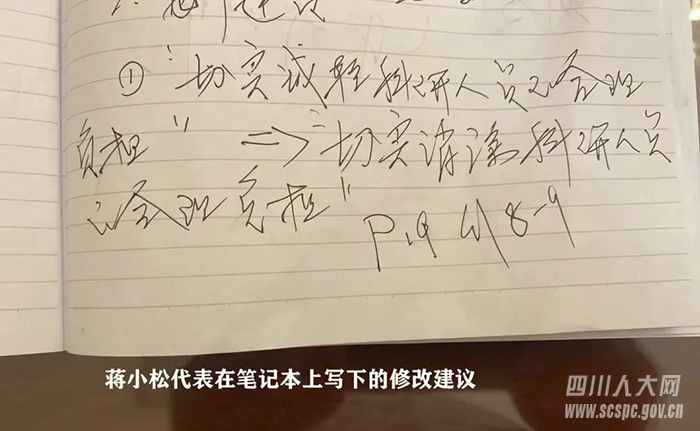 ①“切实减轻科研人员不合理
负担” => “切实消除科研人员
不合理负担”
P19
8-9
蒋小松代表在笔记本上写下的修改建议
四川人大网
www.scspc.gov.cn